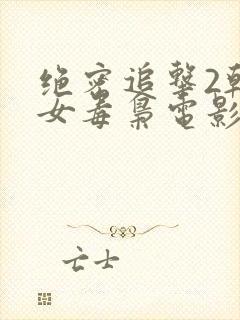 绝密追击2韩
女毒枭电影
亡士